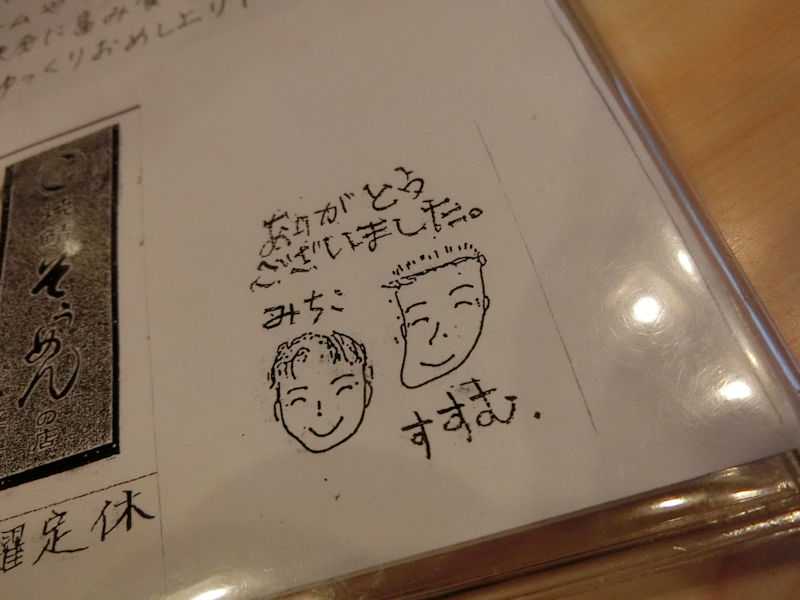 ゆっくりおめし上り
ありがとう
ございました。
みちこ
すすむ.
焼鯖
そうめん
の店
曜定休